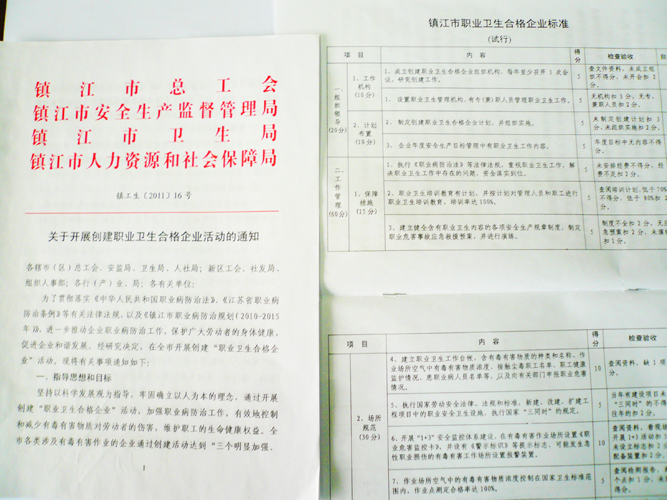 镇江市总工会
镇江市安全生产监督管理局
镇江市卫生局
镇江市人力资源和社会保障局
镇工生〔2011〕16号
关于开展创建职业卫生合格企业活动的通知
各辖市(区)总工会、安监局、卫生局、人社局；新区工会、社发局、
组织人事部；各行(产)业、局；各有关单位：
为了贯彻落实《中华人民共和国职业病防治法》、《江苏省职业病
防治条例》等有关法律法规，以及《镇江市职业病防治规划(2010-2015
年)》，进一步推动企业职业病防治工作，保护广大劳动者的身体健康，
促进企业和谐发展。经研究决定，在全市开展创建“职业卫生合格企
业”活动，现将有关事项通知如下：
一、指导思想和目标
坚持以科学发展观为指导，牢固确立以人为本的理念，通过开展
创建“职业卫生合格企业”活动，加强职业病防治工作，有效地控制
和减少有毒有害物质对劳动者的伤害，维护职工的生命健康权益。全
市各类涉及有毒有害作业的企业通过创建活动达到“三个明显加强、
1
镇江市职业卫生合格企业标准
(试行)
项目
内容
得分
检查验收
一、组织领导(20分)
1、工作机构(10分)
1、成立创建职业卫生合格企业组织机构，每年至少召开1次会
议，研究创建工作。
5
查文件资料，未成立组
织不得分，未开会扣2
分。
2、设置职业卫生管理机构，有专(兼)职人员管理职业卫生工作。
5
无机构扣3分，无专、
兼职人员扣2分。
2、计划布置(10分)
2、制定创建职业卫生合格企业计划，并组织实施。
5
未制定创建计划扣3
分，未组织实施扣2分。
3、企业年度安全生产目标管理中有职业卫生工作内容。
5
年度目标中无内容不得
分。
二、工作管理(60分)
1、保障措施(15分)
1、执行《职业病防治法》等法律法规，重视职业卫生工作，解
决职业卫生工作中存在的问题，资金落实到位。
5
未安排经费不得分，经
费不足扣2分。
2、职业卫生培训教育有计划，并按计划对管理人员和职工进行
职业卫生培训教育，培训率达100%。
5
查阅培训计划，低于70%
不得分，低于80%扣2
分。
3、建立健全含有职业卫生内容的各项安全生产规章制度，制定
职业危害事故应急救援预案，并进行演练。
5
制度不全扣2分，无应
急预案扣2分，未演练
扣1分。
项目
内容
得分
检查验收
2、场所规范(30分)
4、建立职业卫生工作台帐，含有毒有害物质的种类和名称，作
业场所空气中有毒有害物质浓度、接触尘毒职工名单、职工健康
监护情况、患职业病人员名单等，以及向有关部门申报职业危害
情况。
10
查阅资料，缺1项
分。
5、执行国家劳动安全法律、法规和标准，新建、改建、扩建工
程项目中的职业安全卫生设施，执行国家“三同时”的规定。
5
当年有建设项目未
“三同时”的不得
往年的扣2分。
6、开展“1+3”安全监控体系建设，在有毒有害作业场所设置《职
业危害监控卡》，并设有《警示标识》等提示标志，可能发生急
性职业损伤的有毒有害工作场所设置报警装置。
10
查阅资料、看现场
开展“1+3”活动扣
未设立标志扣2分
配备装置扣2分。
7、作业场所空气中的有毒有害物质浓度控制在国家卫生标准范
围内，作业点测定合格率达100%。
查阅检测报告，
个点扣1分，未
得分。